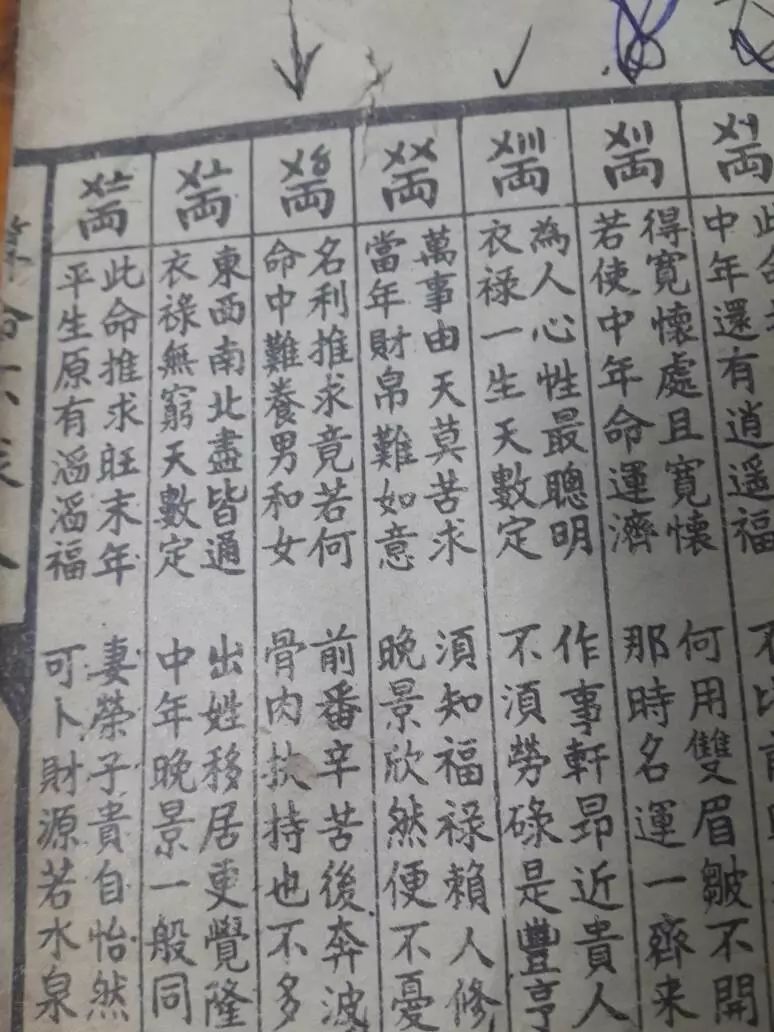 〤〡両
中年還有逍遥福
〤〢両
得寬懷處且寬懷 何用雙眉皺不開
若使中年命運濟 那時名運一齊来
〤〣両
為人心性最聰明 作事軒昂近貴人
衣禄一生天數定 不湏勞碌是豐亨
〤〤両
萬事由天莫苦求 湏知福禄賴人修
當年財帛難如意 晚景欣然便不憂
〤〥両
名利推求竟若何 前番辛苦後奔波
命中難養男和女 骨肉扶持也不多
〤〦両
東西南北盡皆通 出姓移居更覺隆
衣祿無窮天數定 中年晚景一般同
〤〧両
此命推求旺末年 妻榮子貴自怡然
平生原有滔滔福 可卜財源若水泉